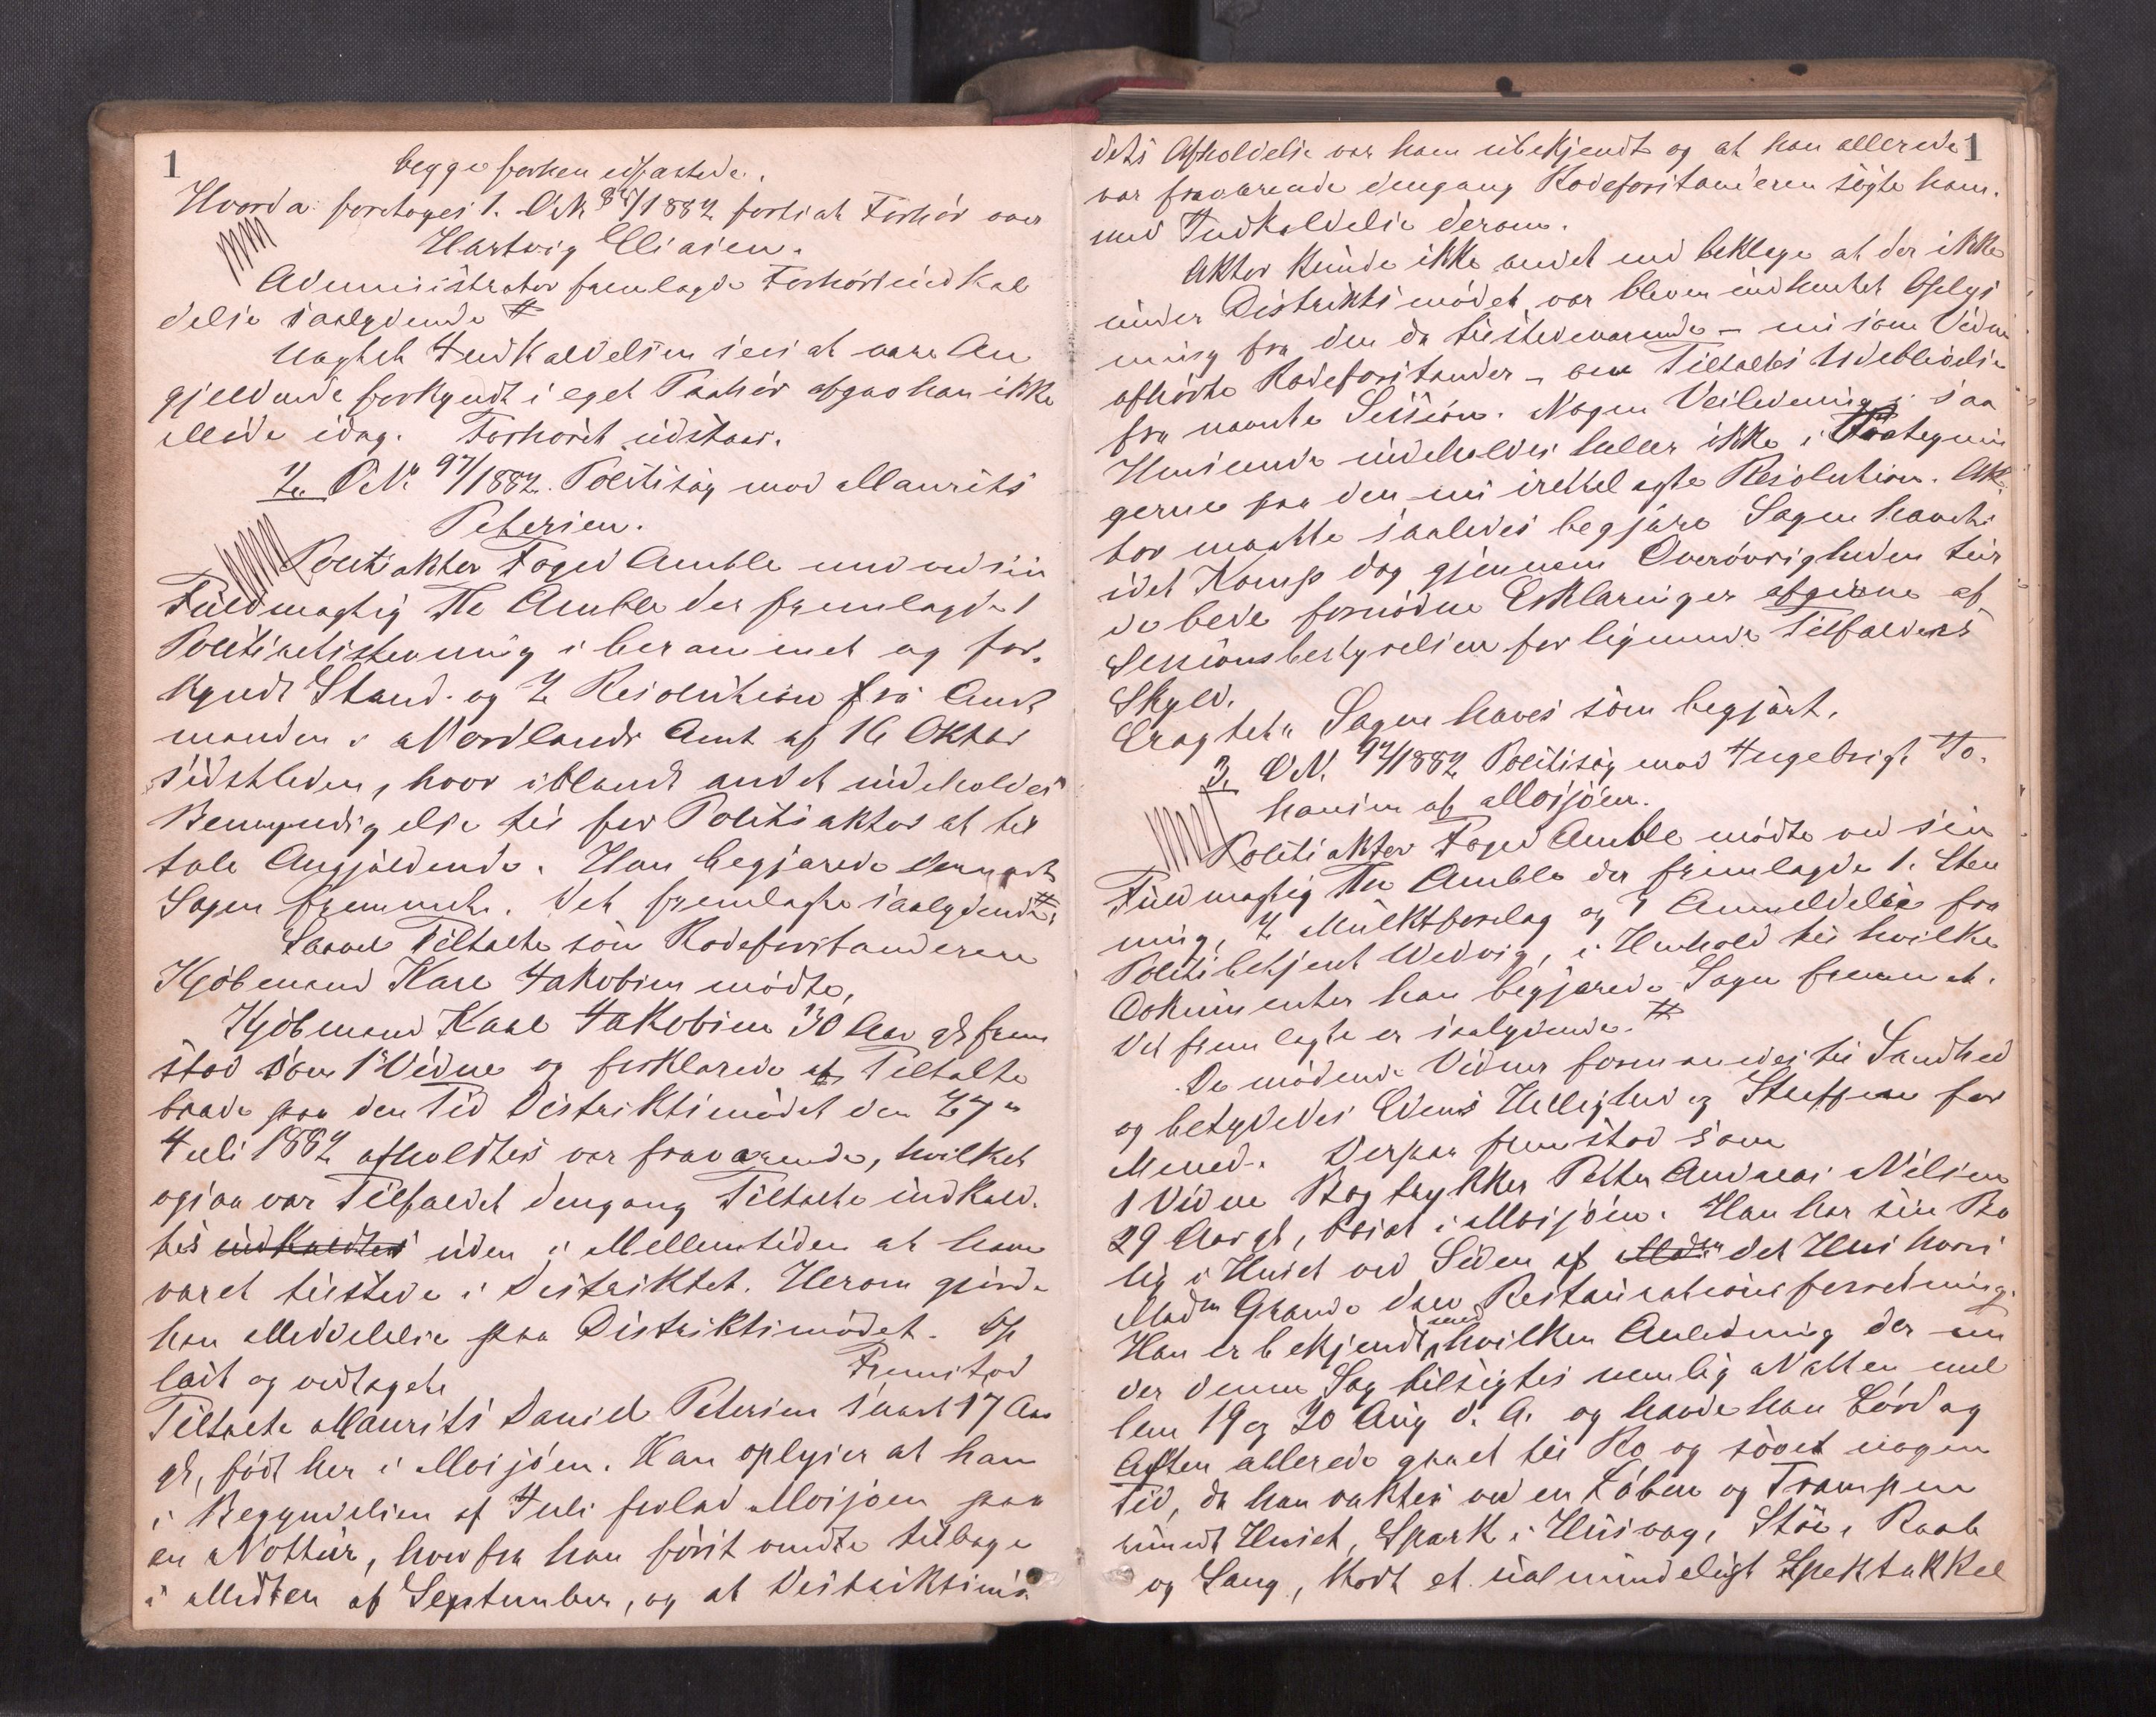 1
begge forhen edfæstede.
Hvorda foretoges 1. D.N. 88/1882 fortsat Forhør over
Hartvig Eliasen.
Administrator fremlagde Forhørsindkal
delse saalydende #
Uagtet Indkaldelsen sees at være An
gjeldende forkyndt i eget Paahør afgav han ikke
Møde idag. Forhøret udstaar.
2. D.N. 97/1882. Politisag mod Maurits
Petersen.
Politiaktor Foged Amble mød ved sin
Fuldmægtig Th. Amble der fremlagde 1
Politiretsstevning i berammet og for-
kyndt Stand og 2 Resolution fra Amt
manden i Nordlands Amt af 16 Oktbr
sidstleden, hvor iblandt andet indeholdes
Bemyndigelse til for Politiaktor at til
tale Angjældende. Han begjærede dernæst
Sagen fremmet. Det fremlagte saalydende #
Saavel Tiltalte som Rodeforstanderen
Kjøbmand Karl Jakobsen mødte.
Kjøbmand Karl Jakobsen 30 Aar gl frem
stod som 1 Vidne og forklarede at Tiltalte
baade paa den Tid Distriktsmødet den 27
Juli 1882 afholdtes var fraværende, hvilket
ogsaa var Tilfældet dengang Tiltalte indkald-
tes indkaldtes uden i Mellemtiden at have
været tilstede i Distriktet. Herom gjorde
han Meddelelse paa Distriktsmødet. Op
læst og vedtaget. Fremstod
Tiltalte Maurits Daniel Petersen snart 17 Aar
gl, født her i Mosjøen. Han oplyser at han
i Begyndelsen af Juli forlod Mosjøen paa
en Nottur, hvorfra han først vendte tilbage
i Midten af September, og at Distriktsmø
1
dets Afholdelse var ham ubekjendt og at han allerede
var fraværende dengang Rodeforstanderen søgte ham
med Indkaldelse derom.
Aktor kunde ikke andet end beklage at der ikke
under Distriktsmødet var bleven indhentet Oplys
ning fra den da tilstedeværende – nu som Vidne
afhørte Rodeforstander – om Tiltaltes Udeblivelse
fra nævnte Session. Nogen Veiledning i saa
Henseende indeholdes heller ikke i Paategnin
gerne paa den nu irettelagte Resolution. Ak
tor maatte saaledes begjære Sagen hævet
idet Komp dog gjennem Overøvrigheden til
de bede fornødne Erklæringer afgivne af
Sessionsbestyrelsen for lignende Tilfælders
Skyld.
Eragtet: Sagen hæves som begjært.
3. D.N. 94/1882 Politisag mod Ingebrigt Jo-
hansen af Mosjøen.
Politiaktor Foged Amble mødte ved sin
Fuldmægtig Th Amble der fremlagde 1. Stev
ning, 2 Mulktforelag og 3 Anmeldelse fra
Politibetjent Wedvig, i Henhold til hvilke
Dokumenter han begjærede Sagen fremmet.
Det fremlagte er saalydende. #
De mødende Vidner formanedes til Sandhed
og betydedes Edens Hellighed og Straffen for
Mened. Derpaa fremstod som
1 Vidne Bogtrykker Petter Andreas Nilsen
29 Aar gl, bosat i Mosjøen. Han har sin Bo
lig i Huset ved Siden af Madm det Hus hvori
Madm Grande drev Restaurationsforretning.
Han er bekjendt med hvilken Anledning der un
der denne Sag tilsigtes nemlig Natten mel
lem 19 og 20 Aug d. A. og havde han Lørdag
Aften allerede gaaet til Ro og sovet nogen
Tid, da han vaktes ved en Løben og Trampen
rundt Huset, Spark i Husvæg, Støi, Raab
og Sang, kort et ualmindeligt Spektakkel